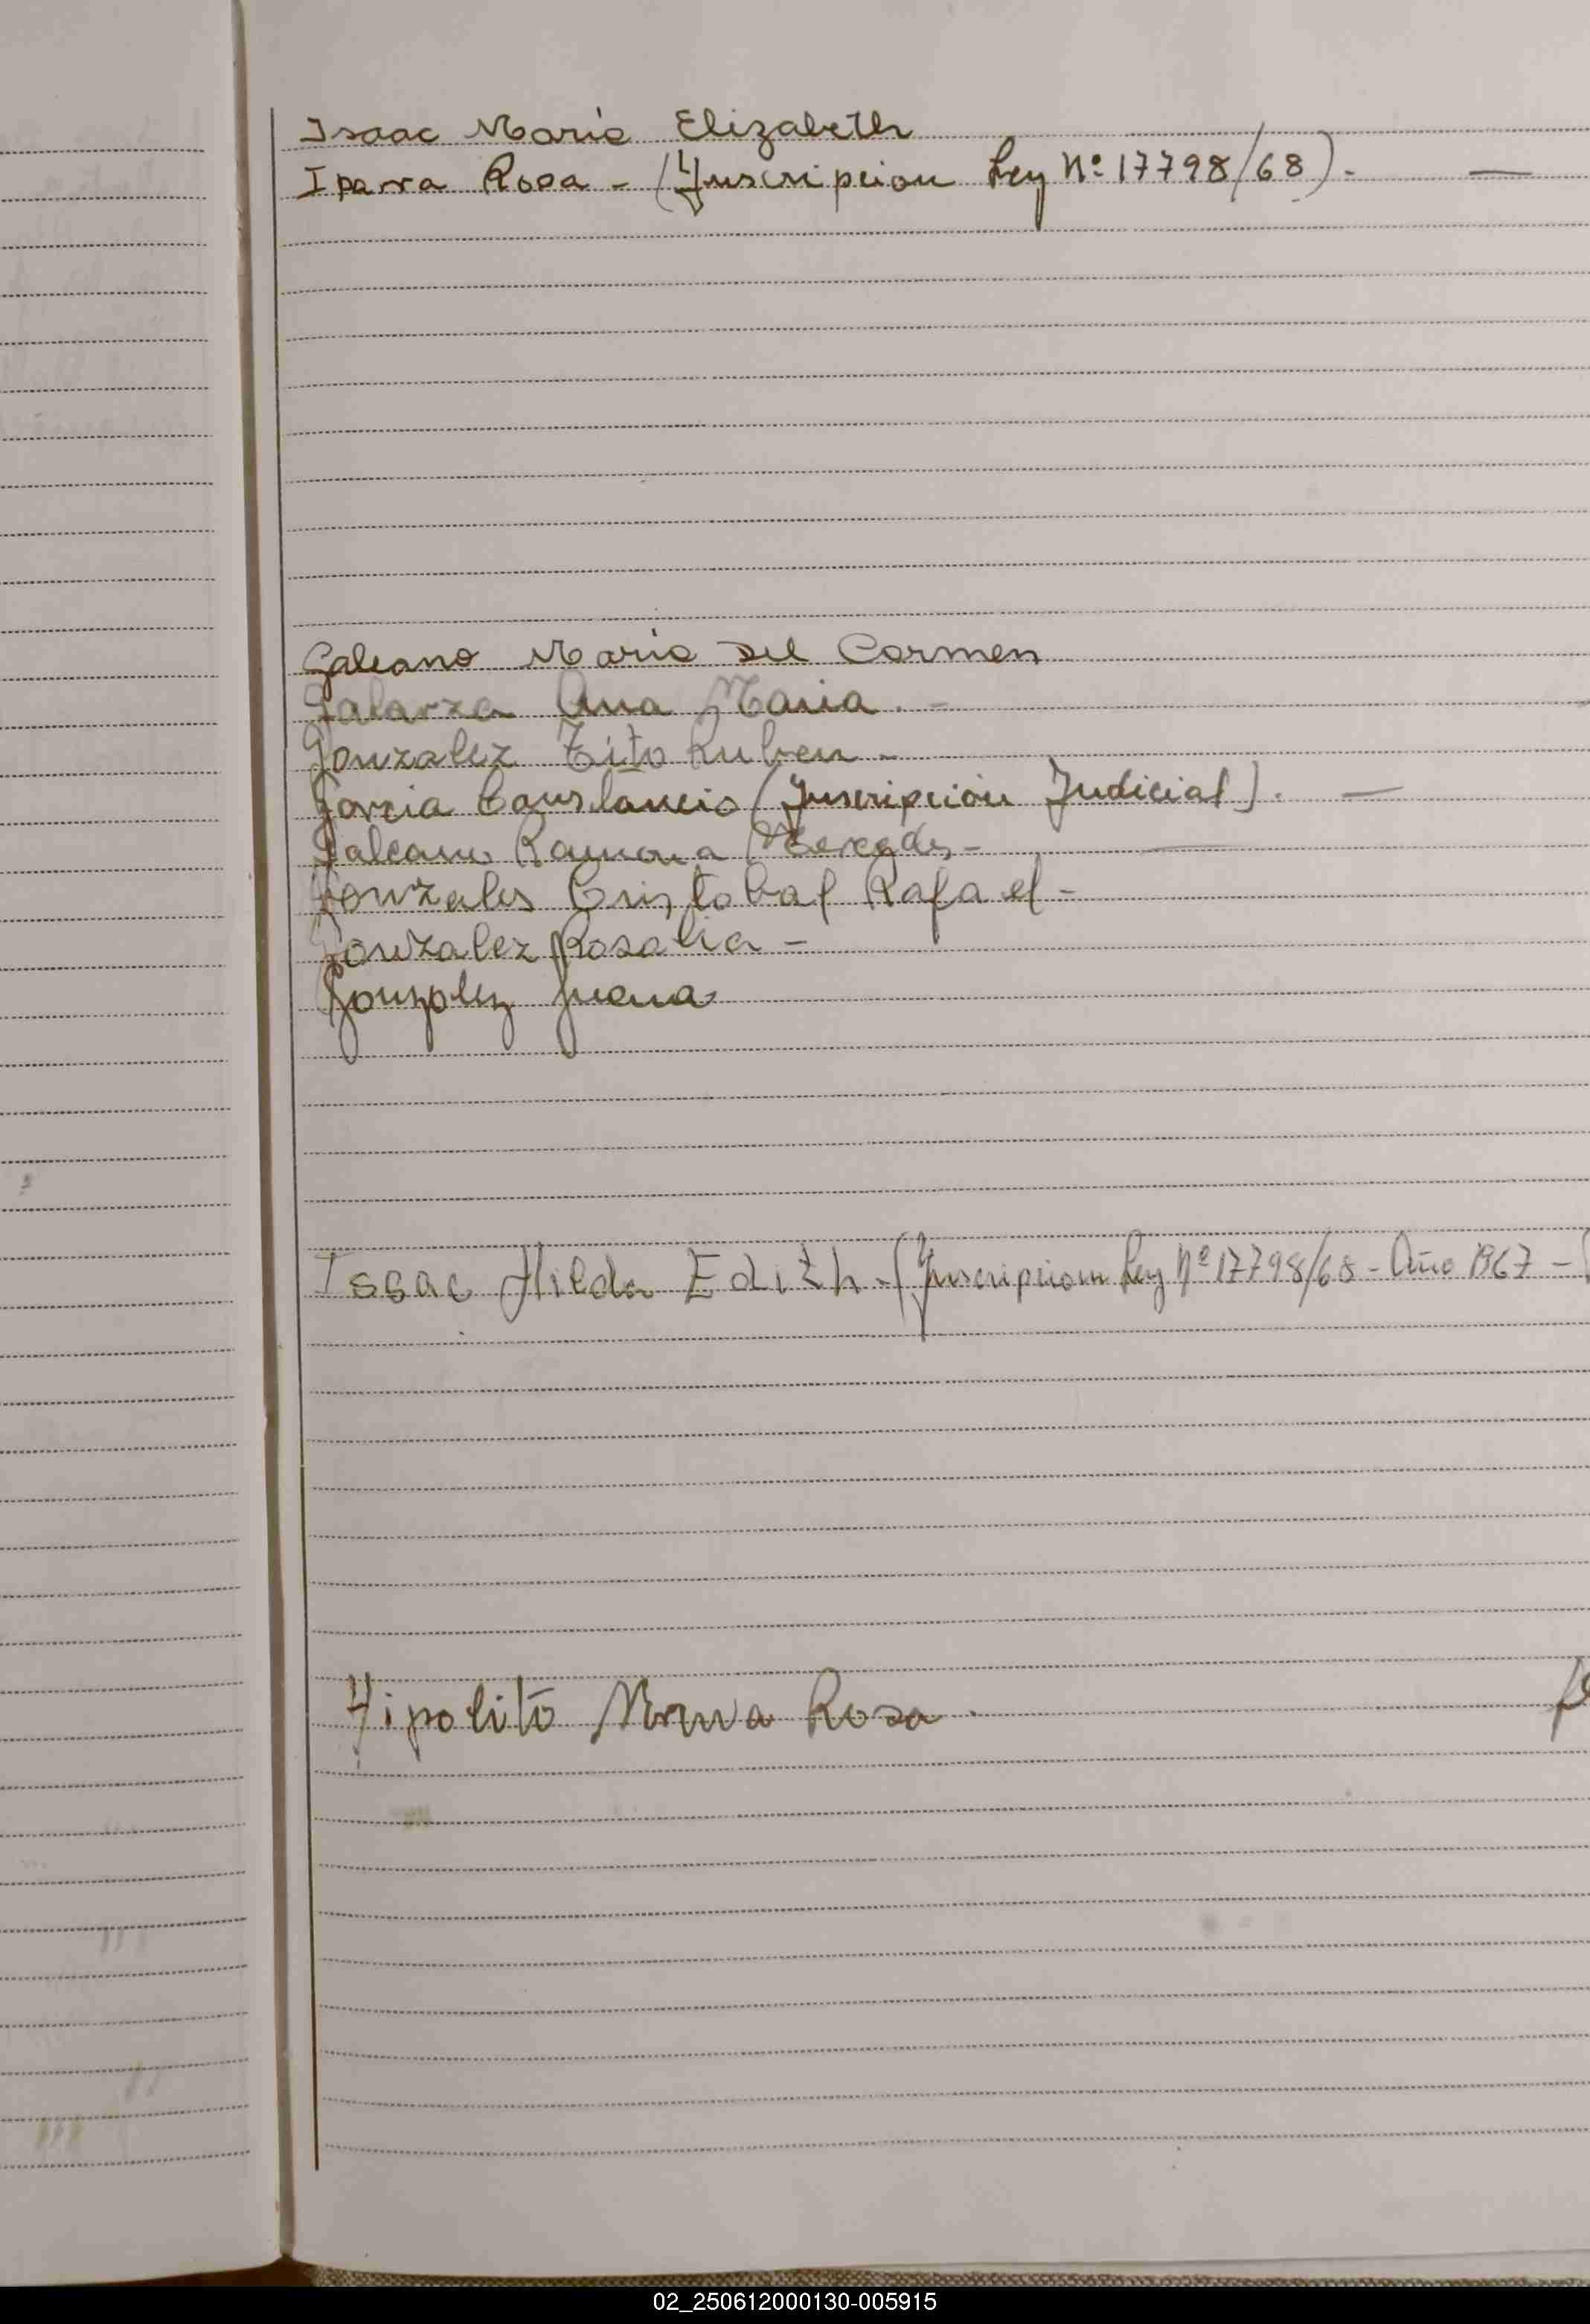 Isaac Maria Elizabeth
Iparra Rosa - (Inscripcion Ley Nº 17798/68). —
Galeano Maria Del Carmen
Galarza Ana Maria. -
Gonzalez Tito Ruben -
Garcia Constancio (Inscripción Judicial). —
Galeano Ramona Mercedes -
Gonzales Cristobal Rafael -
Gonzalez Rosalia -
Gonzalez Juana
Isaac Hilda Edith - (Inscripcion Ley Nº 17798/68 - Año 1967 -
Hipolito Rosa.
02_250612000130-005915